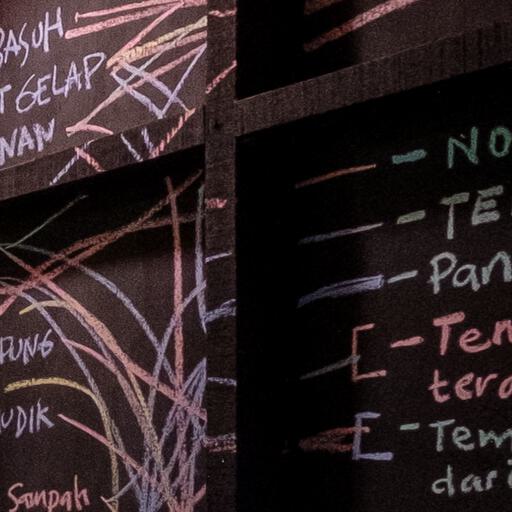 BASUH
T GELAP
NAN
PUNG
UDIK
Sampah
- NO
- TE
- Pan
[ - Tem
tera
[ - Tem
dari